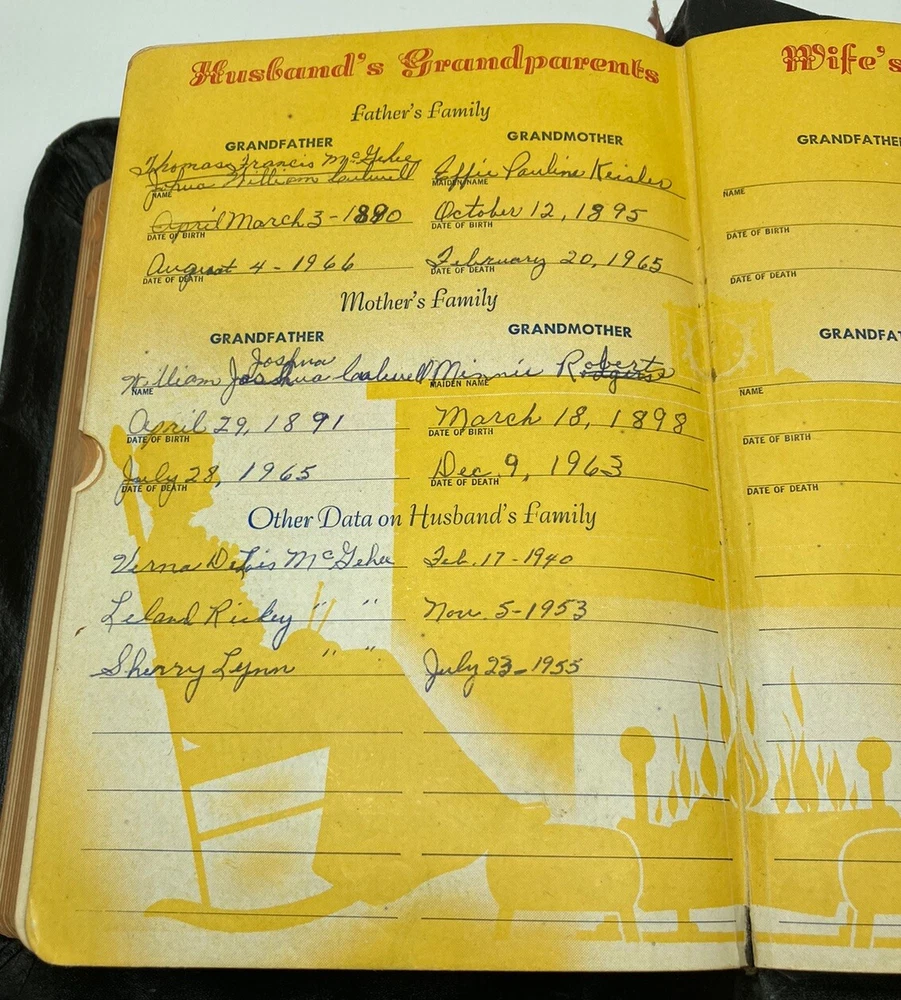 Husband's Grandparents
Father's Family
GRANDFATHER GRANDMOTHER
Thomas Francis McGehee Effie Pauline Keisler
Joshua William
NAME MAIDEN NAME
April March 3 - 1890 October 12, 1895
DATE OF BIRTH DATE OF BIRTH
August 4 - 1966 February 20, 1965
DATE OF DEATH DATE OF DEATH
Mother's Family
GRANDFATHER GRANDMOTHER
Joshua Roberts
William Joshua Minnie Rodgers
NAME MAIDEN NAME
April 29, 1891 March 18, 1898
DATE OF BIRTH DATE OF BIRTH
July 28, 1965 Dec. 9, 1963
DATE OF DEATH DATE OF DEATH
Other Data on Husband's Family
Verna DeLois McGehee Feb. 17 - 1940
Leland Rickey " " Nov. 5 - 1953
Sherry Lynn " " July 23 - 1955
Wife's
GRANDFATHER
NAME
DATE OF BIRTH
DATE OF DEATH
GRANDFAT
NAME
DATE OF BIRTH
DATE OF DEATH